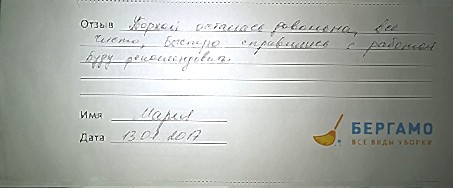 Отзыв Уборкой осталась довольна, все
чисто, быстро справились с работой
Буду рекомендовать.
Имя Мария
Дата 13.01.2017
БЕРГАМО
ВСЕ ВИДЫ УБОРКИ